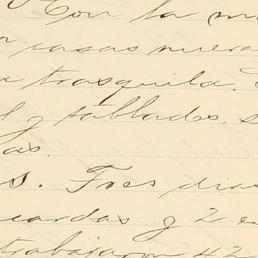 Con la m
casas nueva
a trasquila.
l y tablados. s
as.
s. Tres dias
cardas y 2 e
trabajaron 42